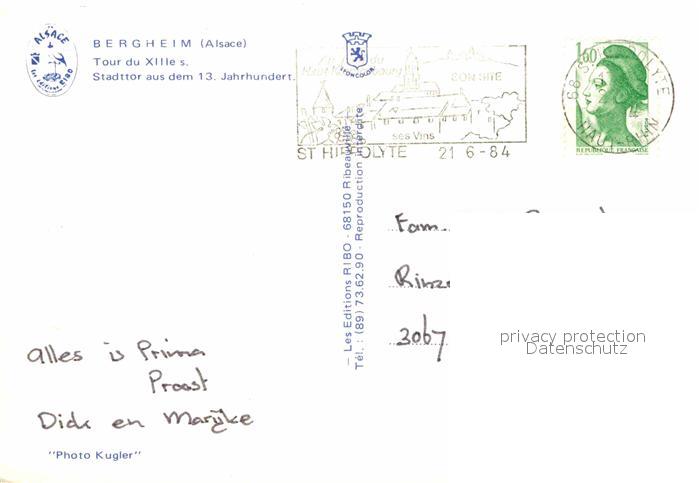 ALSACE
les éditions RIBO
BERGHEIM (Alsace)
Tour du XIIIe s.
Stadttor aus dem 13. Jahrhundert.
YONCOLOR
SON SITE
ses Vins
ST HIPPOLYTE 21 6-84
1,60
REPUBLIQUE FRANÇAISE
68 ST HIPPOLYTE
HAUT-RHIN
Les Editions RIBO - 68150 Ribeauvillé
Tél. : (89) 73.62.90 - Reproduction interdite
Fam.
3067
privacy protection
Datenschutz
Alles is Prima
Proost
Dick en Marijke
"Photo Kugler"